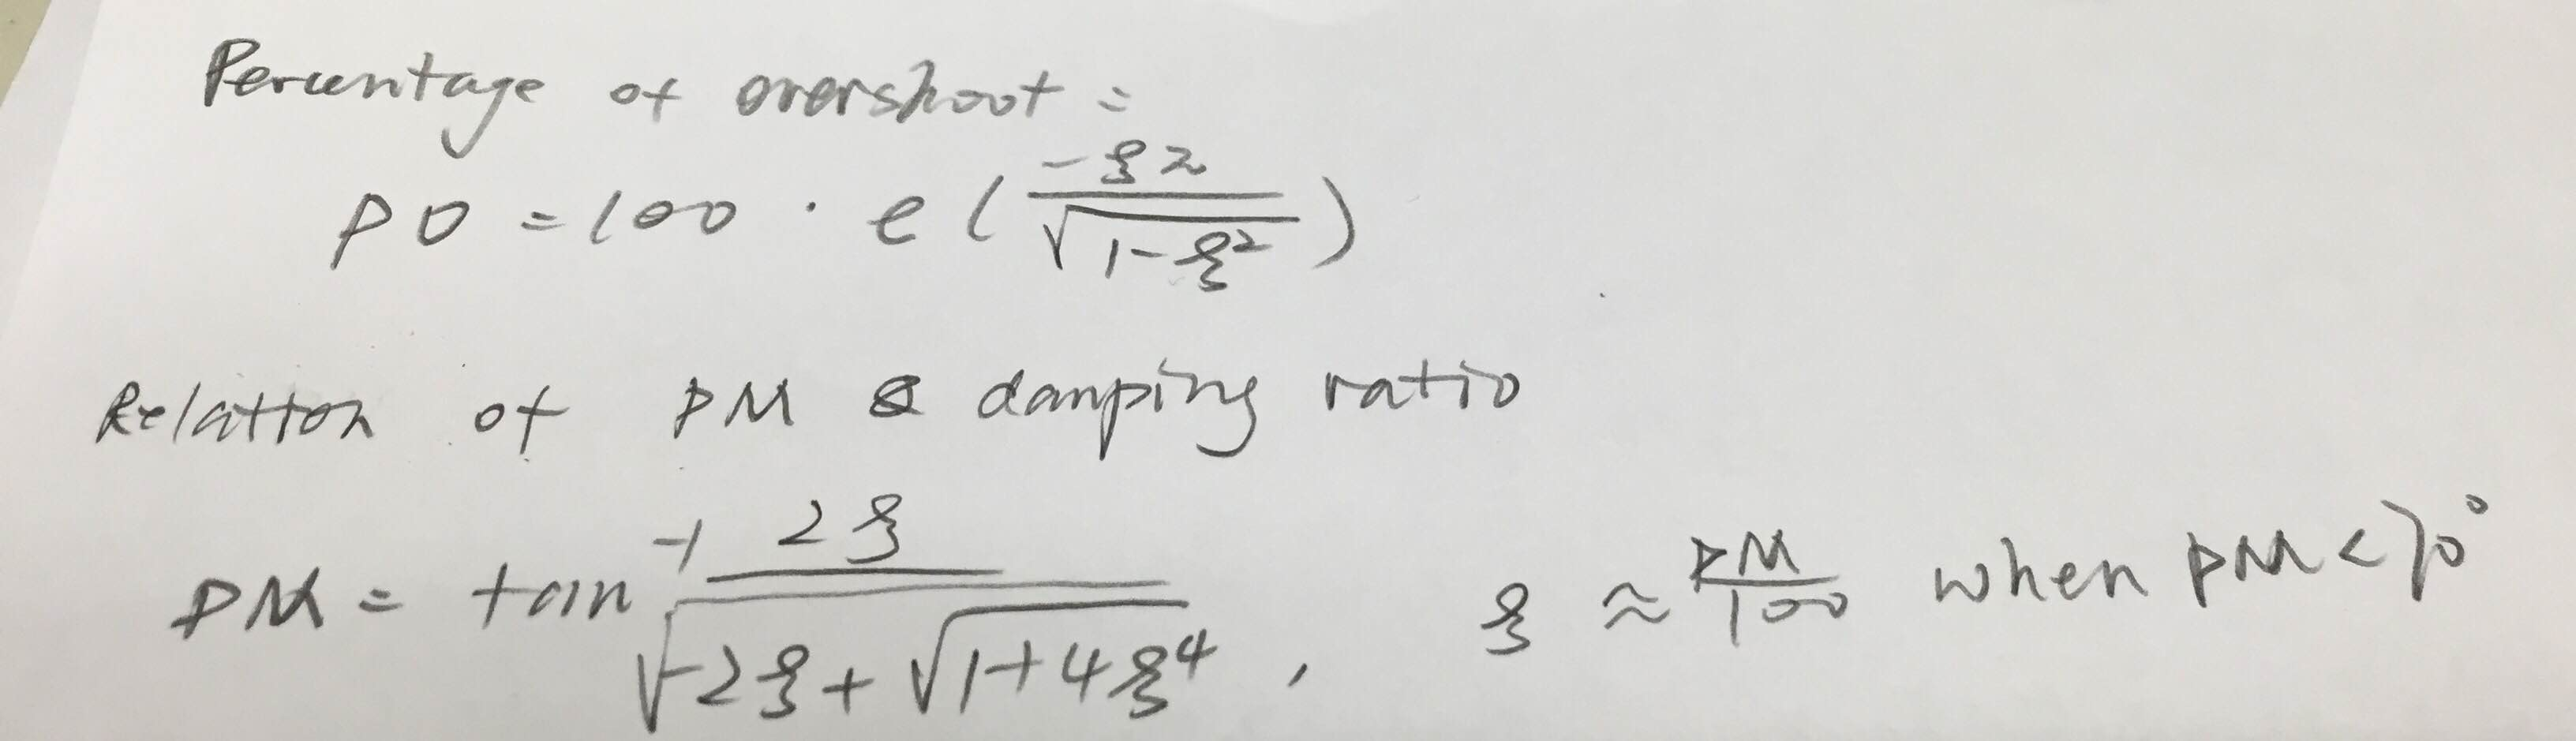 Percentage of overshoot =
PO = 100 · e ( -ξπ / √(1-ξ²) )
Relation of PM & damping ratio
PM = tan⁻¹ 2ξ / √(-2ξ + √(1+4ξ⁴)) , ξ ≈ PM/100 when PM < 70°